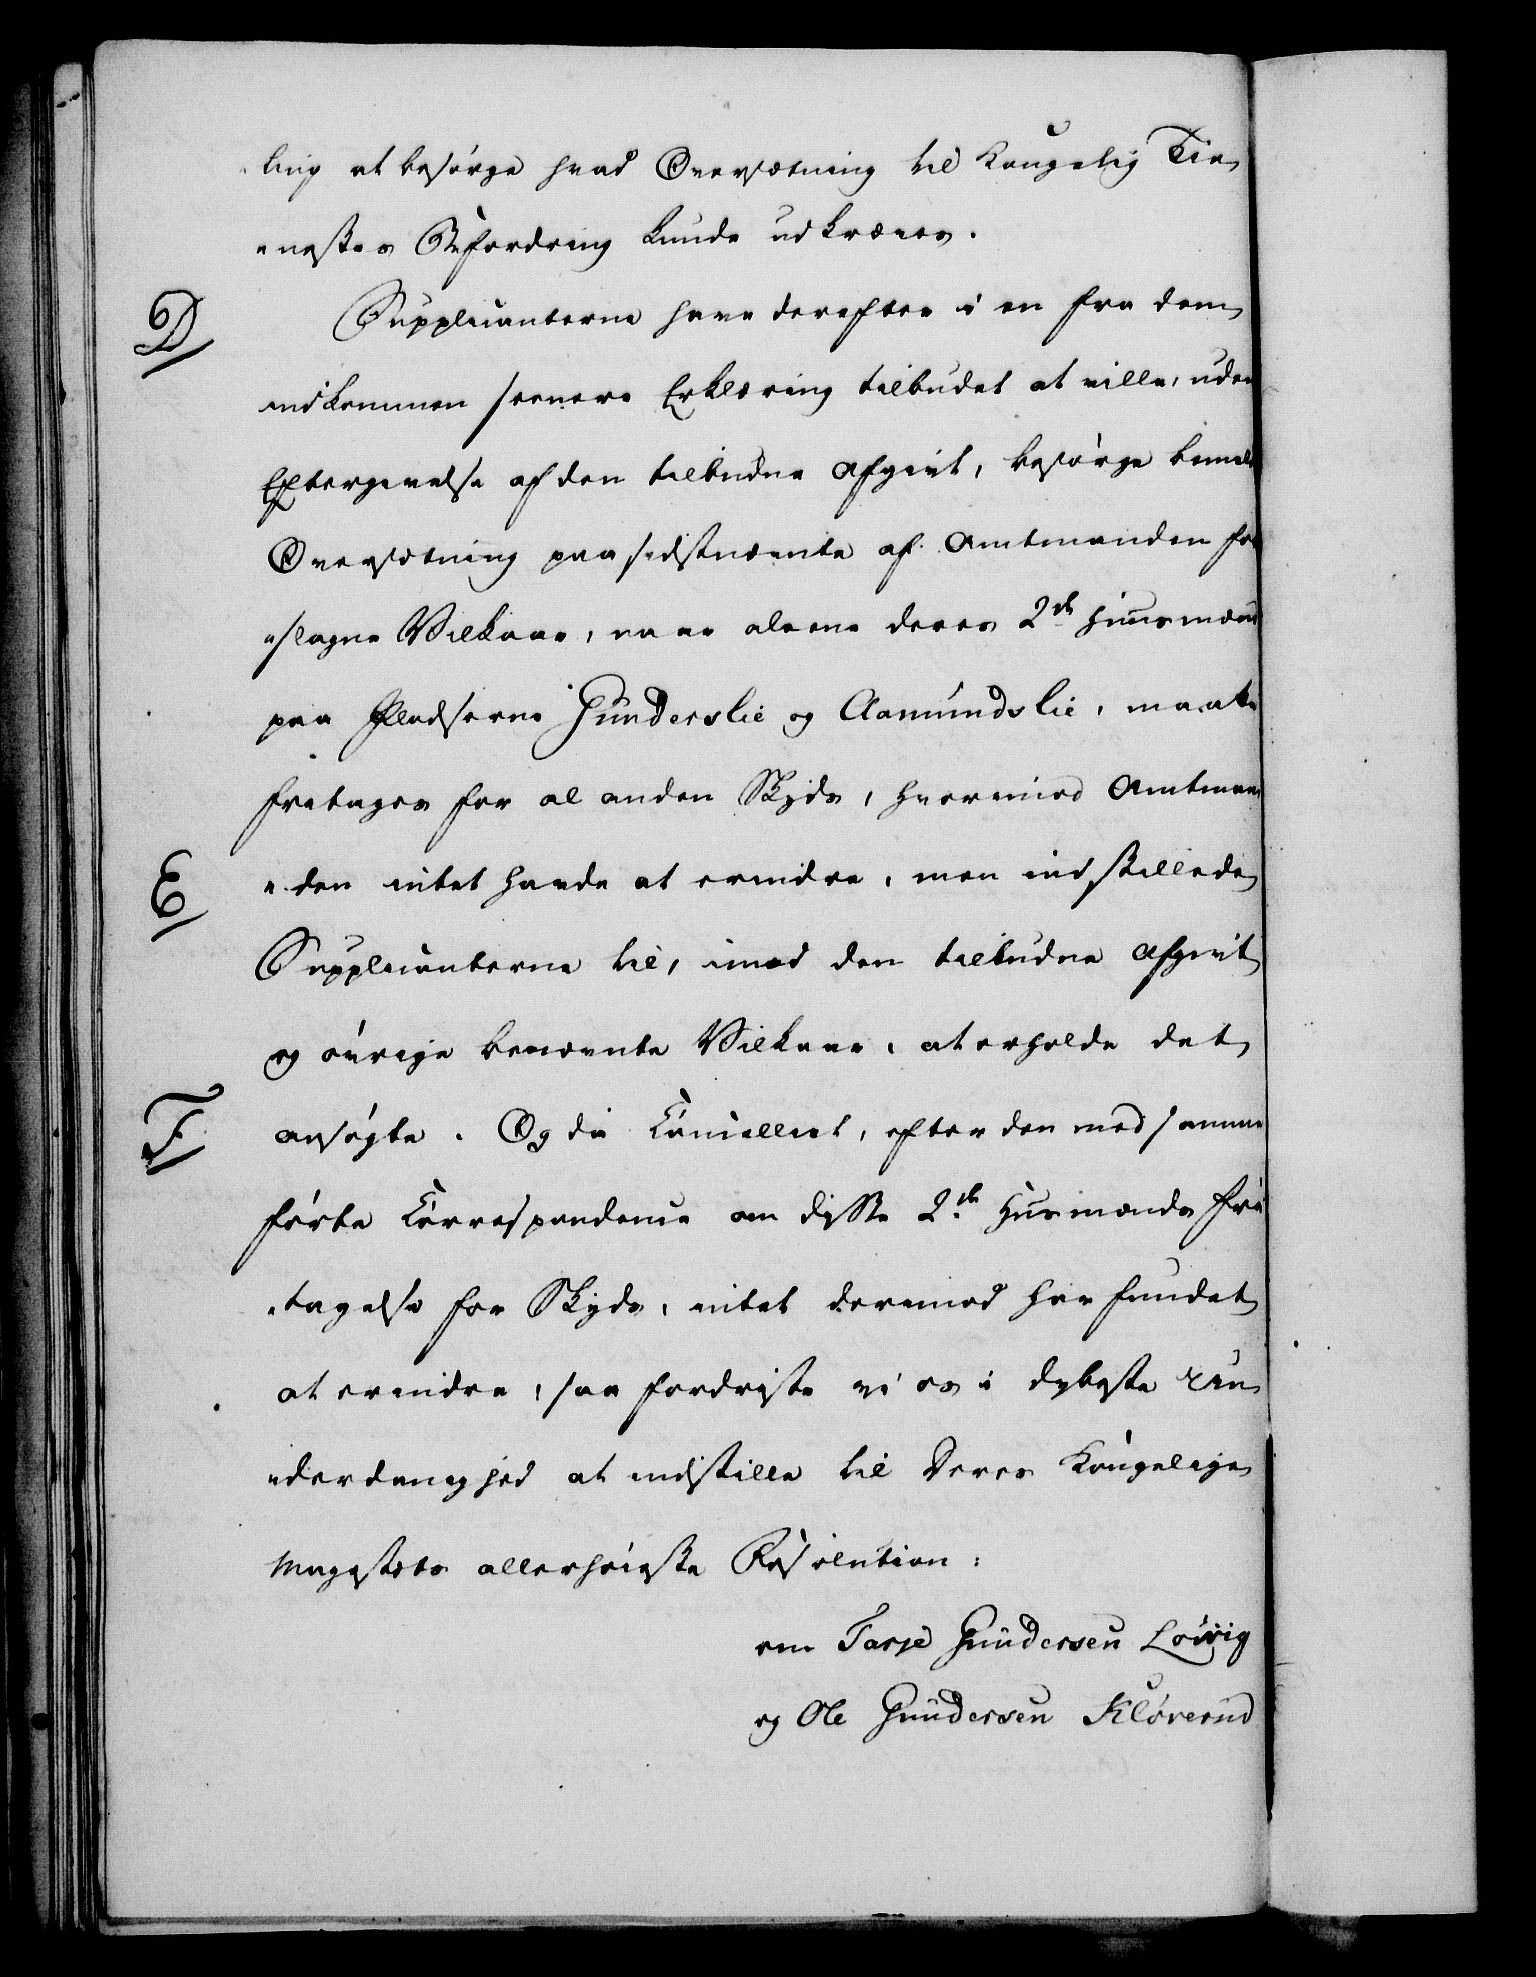 ling at besørge hvad Oversætning til Kongelig Tie-
"nestes Befordring kunde udkræves.
D/
Supplicanterne have derefter i en fra dem
indkommen seenere Erklæring tilbudet at ville, uden
Eftergivelse af den tilbudne Afgivt, besørge bemelte
Oversætning paa sidstnævnte af Amtmanden fore
"slagne Vilkaar, naar alleene deres 2de Huusmænd
paa Pladserne Gunderslie og Aamundslie, maatte
fritages for al anden Skyds, hvorimod Amtman
E/
"den intet havde at erindre, men indstillede
Supplicanterne til, imod den tilbudne Afgivt
og øvrige benævnte Vilkaar, at erholde det
F/
ansøgte. Og da Cancelliet, efter den med samme
førte Correspondence om disse 2de Huusmænds fri
"tagelse for Skyds, intet derimod har fundet
at erindre, saa fordriste vi os i dybeste Un
"derdanighed at indstille til Deres Kongelige
Majestæts allerhøieste Resolution:
om Tarje Gundersen Løvig
og Ole Gundersen Kløverud